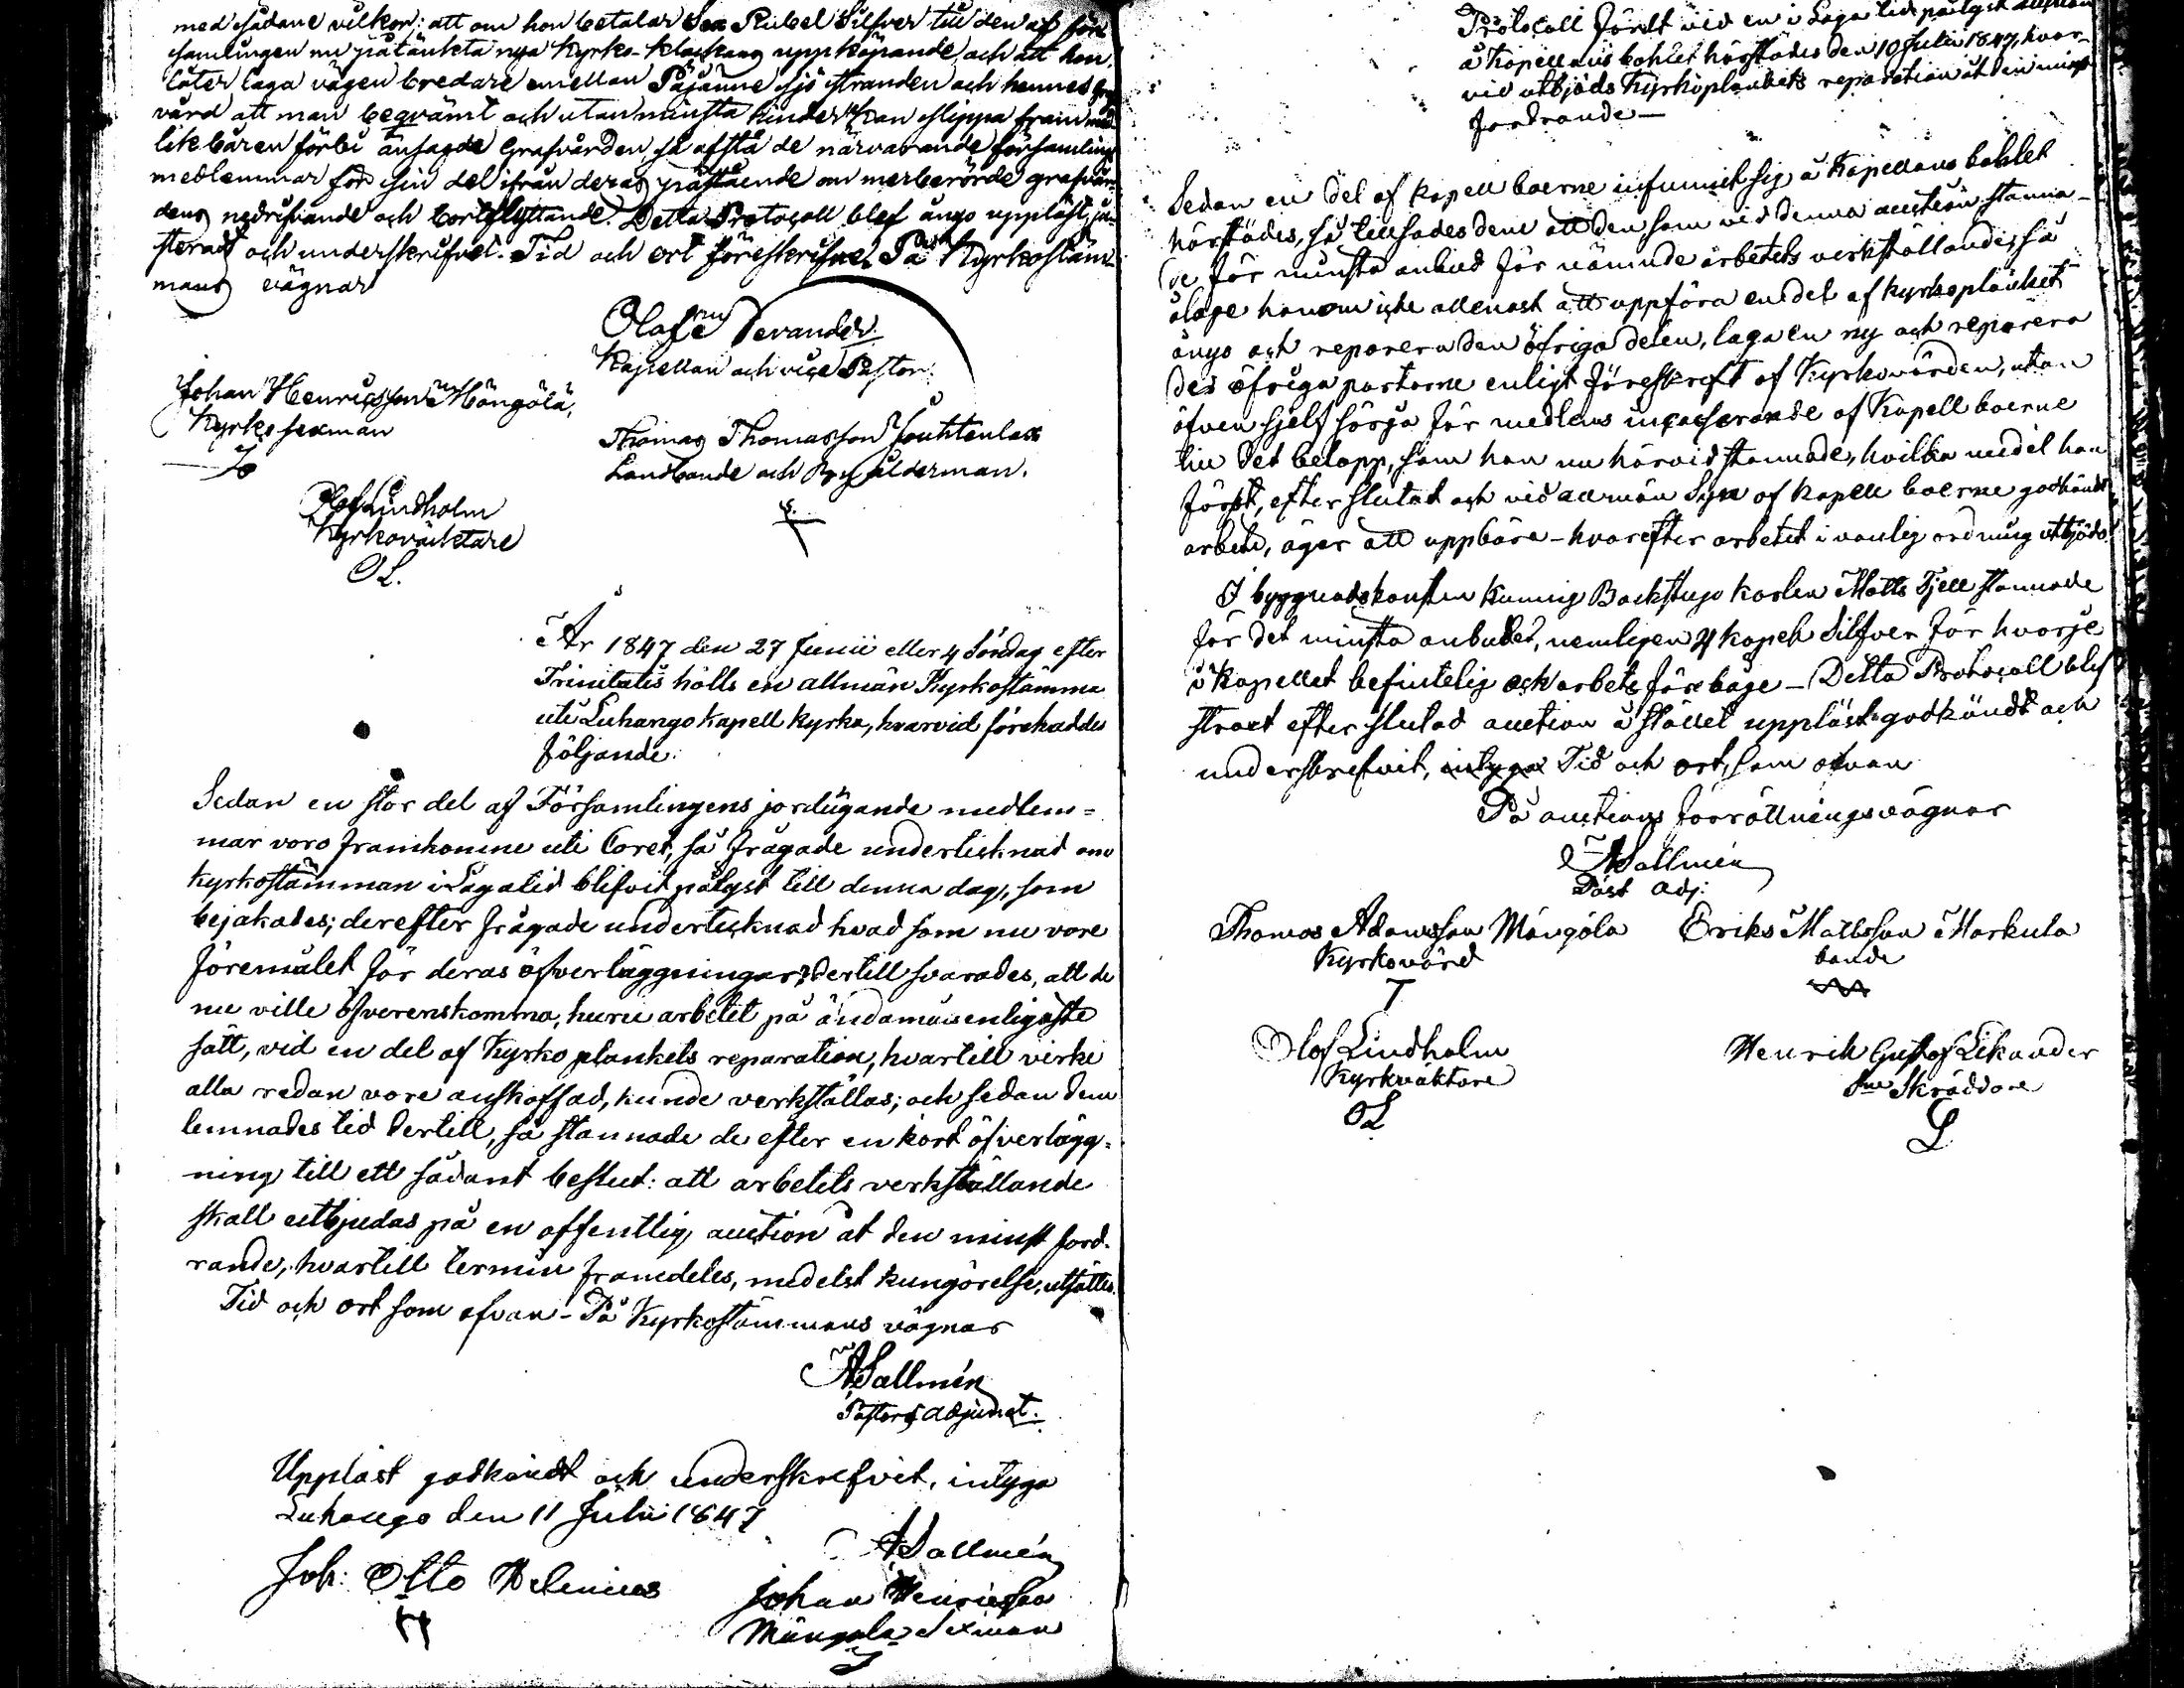 med sådane vilkor; att om hon betalar Sex Rubel Silfver till den af för-
samlingen nu påtänkta nya Kyrko-klockans uppköpande, och att hon
låter laga vägen bredare emellan Päjänne sjö stranden och hennes graf
vård att man beqvämt och utan minsta hinder kan slippa fram med
likbåren förbi ansagde Grafvården, så afstå de närvarande församlings
medlemmar för sin del ifrån deras påstående om merberörde grafvår-
dens nedrifvande och bortflyttande. Detta Protocoll blef ånyo uppläst, ju-
steradt och underskrifvet. Tid och ort föreskrifne. På Kyrkostäm-
mans vägnar
Olof Devander
Kapellan och vice Pastor.
Johan Henricsson Mångålä,
Kyrko sexman
Thomas Thomasson
Landbonde och By ålderman.
Olof Lindholm
Kyrkoväcktare
OL.
År 1847 den 27 Junii eller 4 Söndag efter
Trinitatis hölls en allmän Kyrkostämma
uti Luhango Kapell kyrka, hvarvid förehaddes
följande:
Sedan en stor del af Församlingens jordägande medlem=
mar voro framkomne uti Coret, så frågade undertecknad om
kyrkostämman i Laga tid blifvit pålyst till denna dag, som
bejakades; derefter frågade undertecknad hvad som nu vore
föremålet för deras öfverläggningar? dertill svarades, att de
nu ville öfverenskomma, huru arbetet på ändamålsenligaste
sätt, vid en del af Kyrko plankets reparation, hvartill virke
alla redan vore anskaffad, kunde verkställas; och sedan dem
lemnades tid dertill, så stannade de efter en kort öfverlägg=
ning till ett sådant beslut: att arbetets verkställande
skall utbjudas på en offentlig auction åt den minst ford-
rande, hvartill termin framdeles, medelst kungörelse, utsättes.
Tid och ort som ofvan - På Kyrkostämmans vägnar
A Sallmén
Pastors adjunct.
Uppläst godkändt och underskrefvit, intyga
Luhango den 11 Julii 1847
A Sallmén
Joh: Otto Helenius
Johan Henricsson
Mångola Sexman
Protocoll fördt vid en i Laga tid pålyst auction
å Kapellans bohlet härstädes den 10 Julii 1847, hvar-
vid utbjöds Kyrkoplankets reparation åt den minst
fordrande -
Sedan en del af kapell boerne infunnit sig å Kapellans bohlet
härstädes, så tillsades dem att den som vid denna auction stanna-
de för minsta anbud för nämnde arbetets verkställande, så
ålåge honom icke allenast att uppföra en del af kyrkoplanket
ånyo och reparera den öfriga delen, laga en ny och reparera
des öfriga portarne enligt föreskrift af Kyrkovärden, utan
äfven sjelf sörja för medlens incasserande af Kapell boerne
till det belopp, som han nu härvid stannade, hvilka medel han
först, efter slutat och vid allmän Syn af kapell boerne godkändt
arbete, äger att uppbära - hvarefter arbetet i vanlig ordning utbjöds.
I byggnadskonsten kunnig Backstugo karlen Matts Fjell stannade
för det minsta anbudet, nemligen 24 kopek Silfver för hvarje
i Kapellet befintelig och arbets före båge - Detta Protocoll blef
straxt efter slutad auction å stället uppläst, godkändt och
underskrefvit, Tid och ort, som ofvan
På auctions förrättnings vägnar
A Sallmén
Past adj:
Thomas Adamsson Mångola
Kyrkovärd
T
Eriks Mattsson Markula
bonde
Olof Lindholm
Kyrkväktare
OL
Henrik Gustof Likander
Skräddare
L